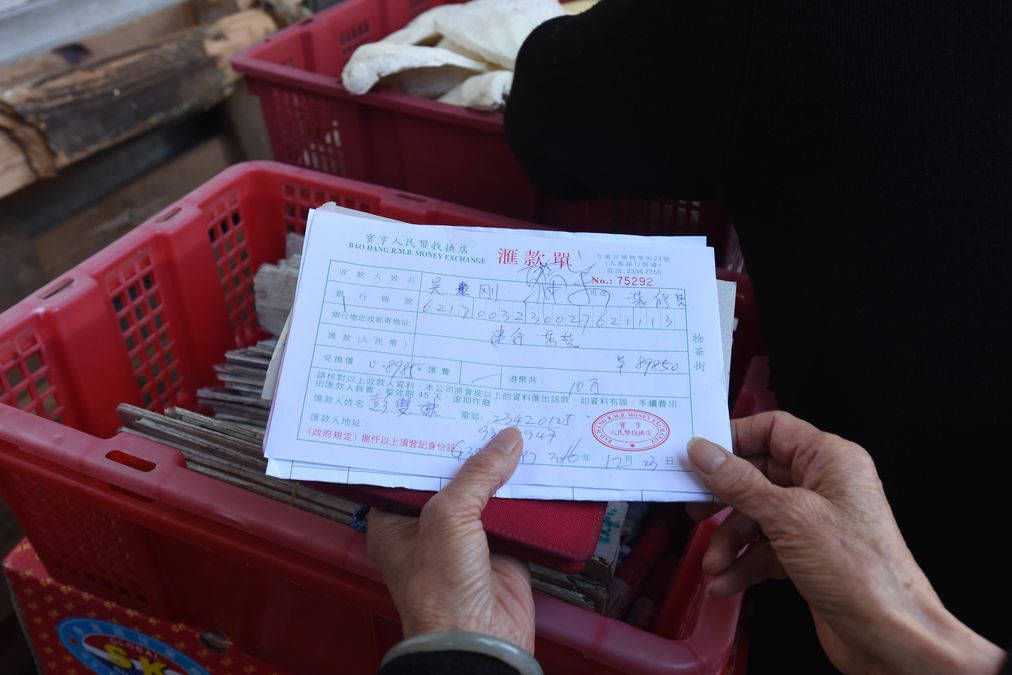 寶亨人民幣找換店
BAO HANG R.M.B. MONEY EXCHANGE
滙款單
九龍官塘物華街23號
電話:23367755
No.: 75292
收款人姓名 吳 剛 用途 裝修費
銀行賬號 6217003230027621113
銀行地址或郵寄地址 建行
匯款(人民幣) 89850
兌換價 0.8985 匯費 港幣共: 10万
請核對以上收款人資料,本公司將會按以上的資料匯出該款,如資料有誤,手續費用
由匯款人負責,有效期45天,逾期作廢
匯款人姓名 彭雙妹 電話: 23420125
匯款人地址:
(政府規定)捌仟以上須登記身份証 2016年12月23日
BAO HANG R.M.B. MONEY EXCHANGE
寶亨
人民幣找換店
物華街
GLOBAL
SK